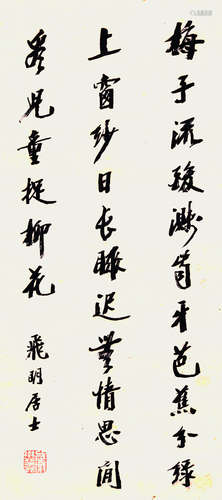 梅子流酸濺齒牙芭蕉分綠
上窗紗日長睡遲無情思閒
看兒童捉柳花
飛明居士